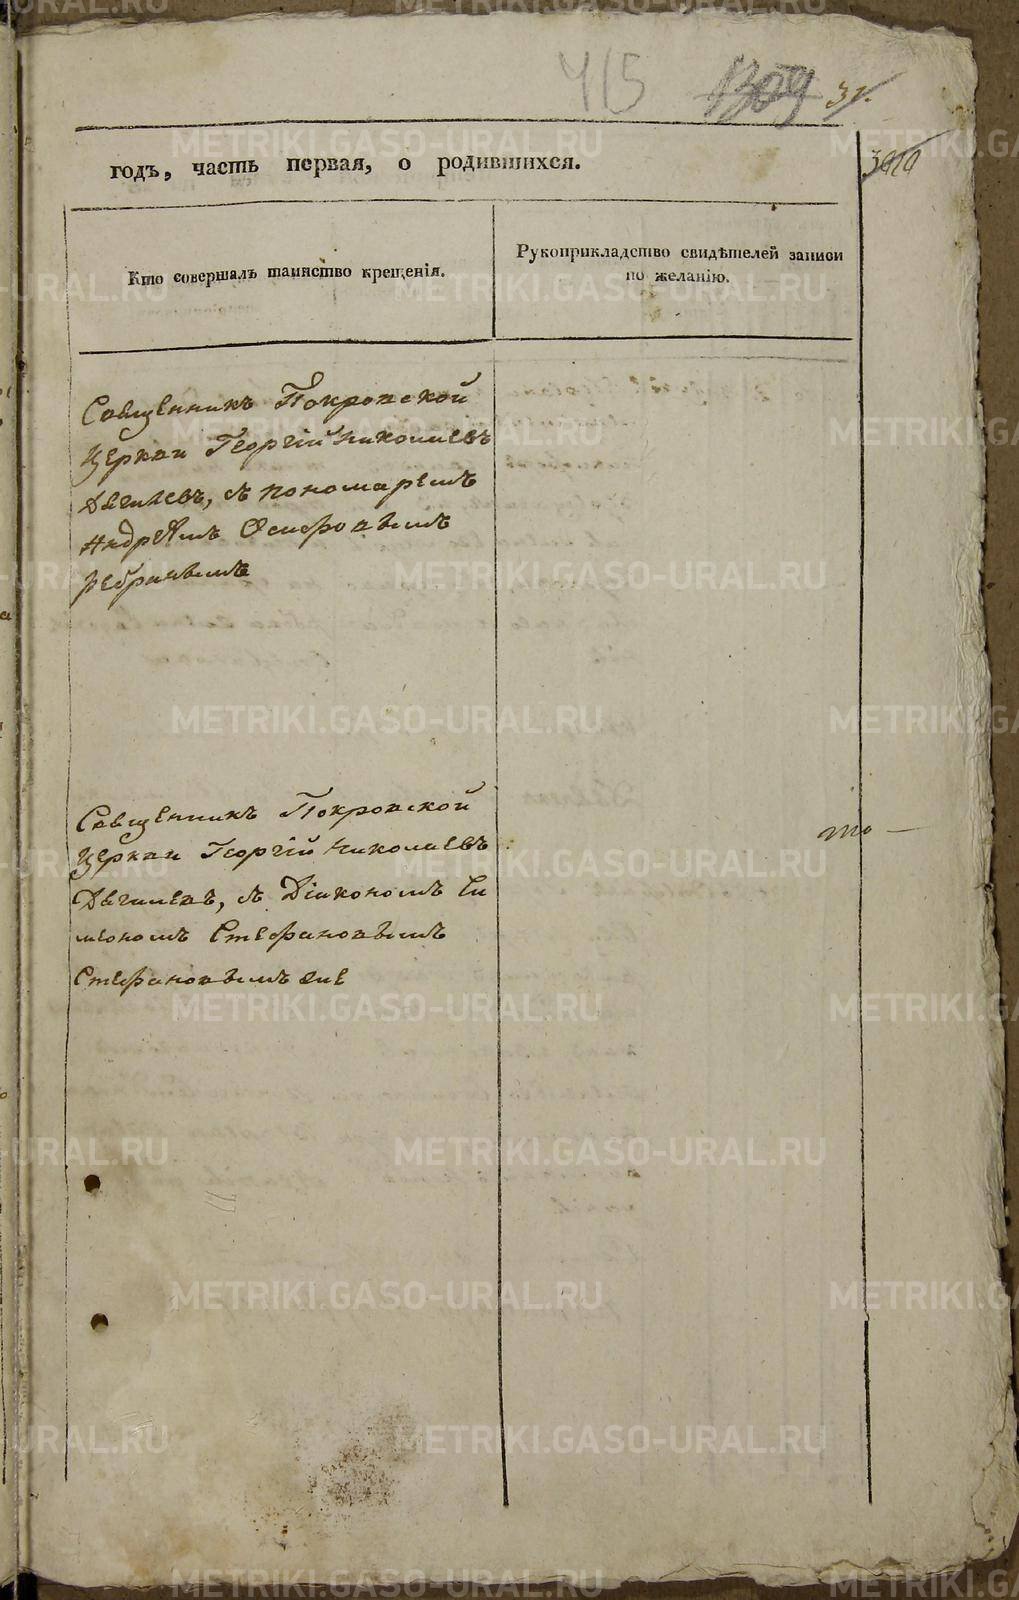 415 1309 31.
3010
годъ, часть первая, о родившихся.
Кто совершалъ таинство крещенія.
Рукоприкладство свидѣтелей записи
по желанію.
Священникъ Покровской
Церкви Георгій Николаевъ
Дягилевъ, съ пономаремъ
Андреямъ Осиповымъ
Ребринымъ
Священникъ Покровской
Церкви Георгій Николаевъ
Дягилевъ, съ Діякономъ Си
меономъ Стефановымъ
Стефановымъ же
METRIKI.GASO-URAL.RU